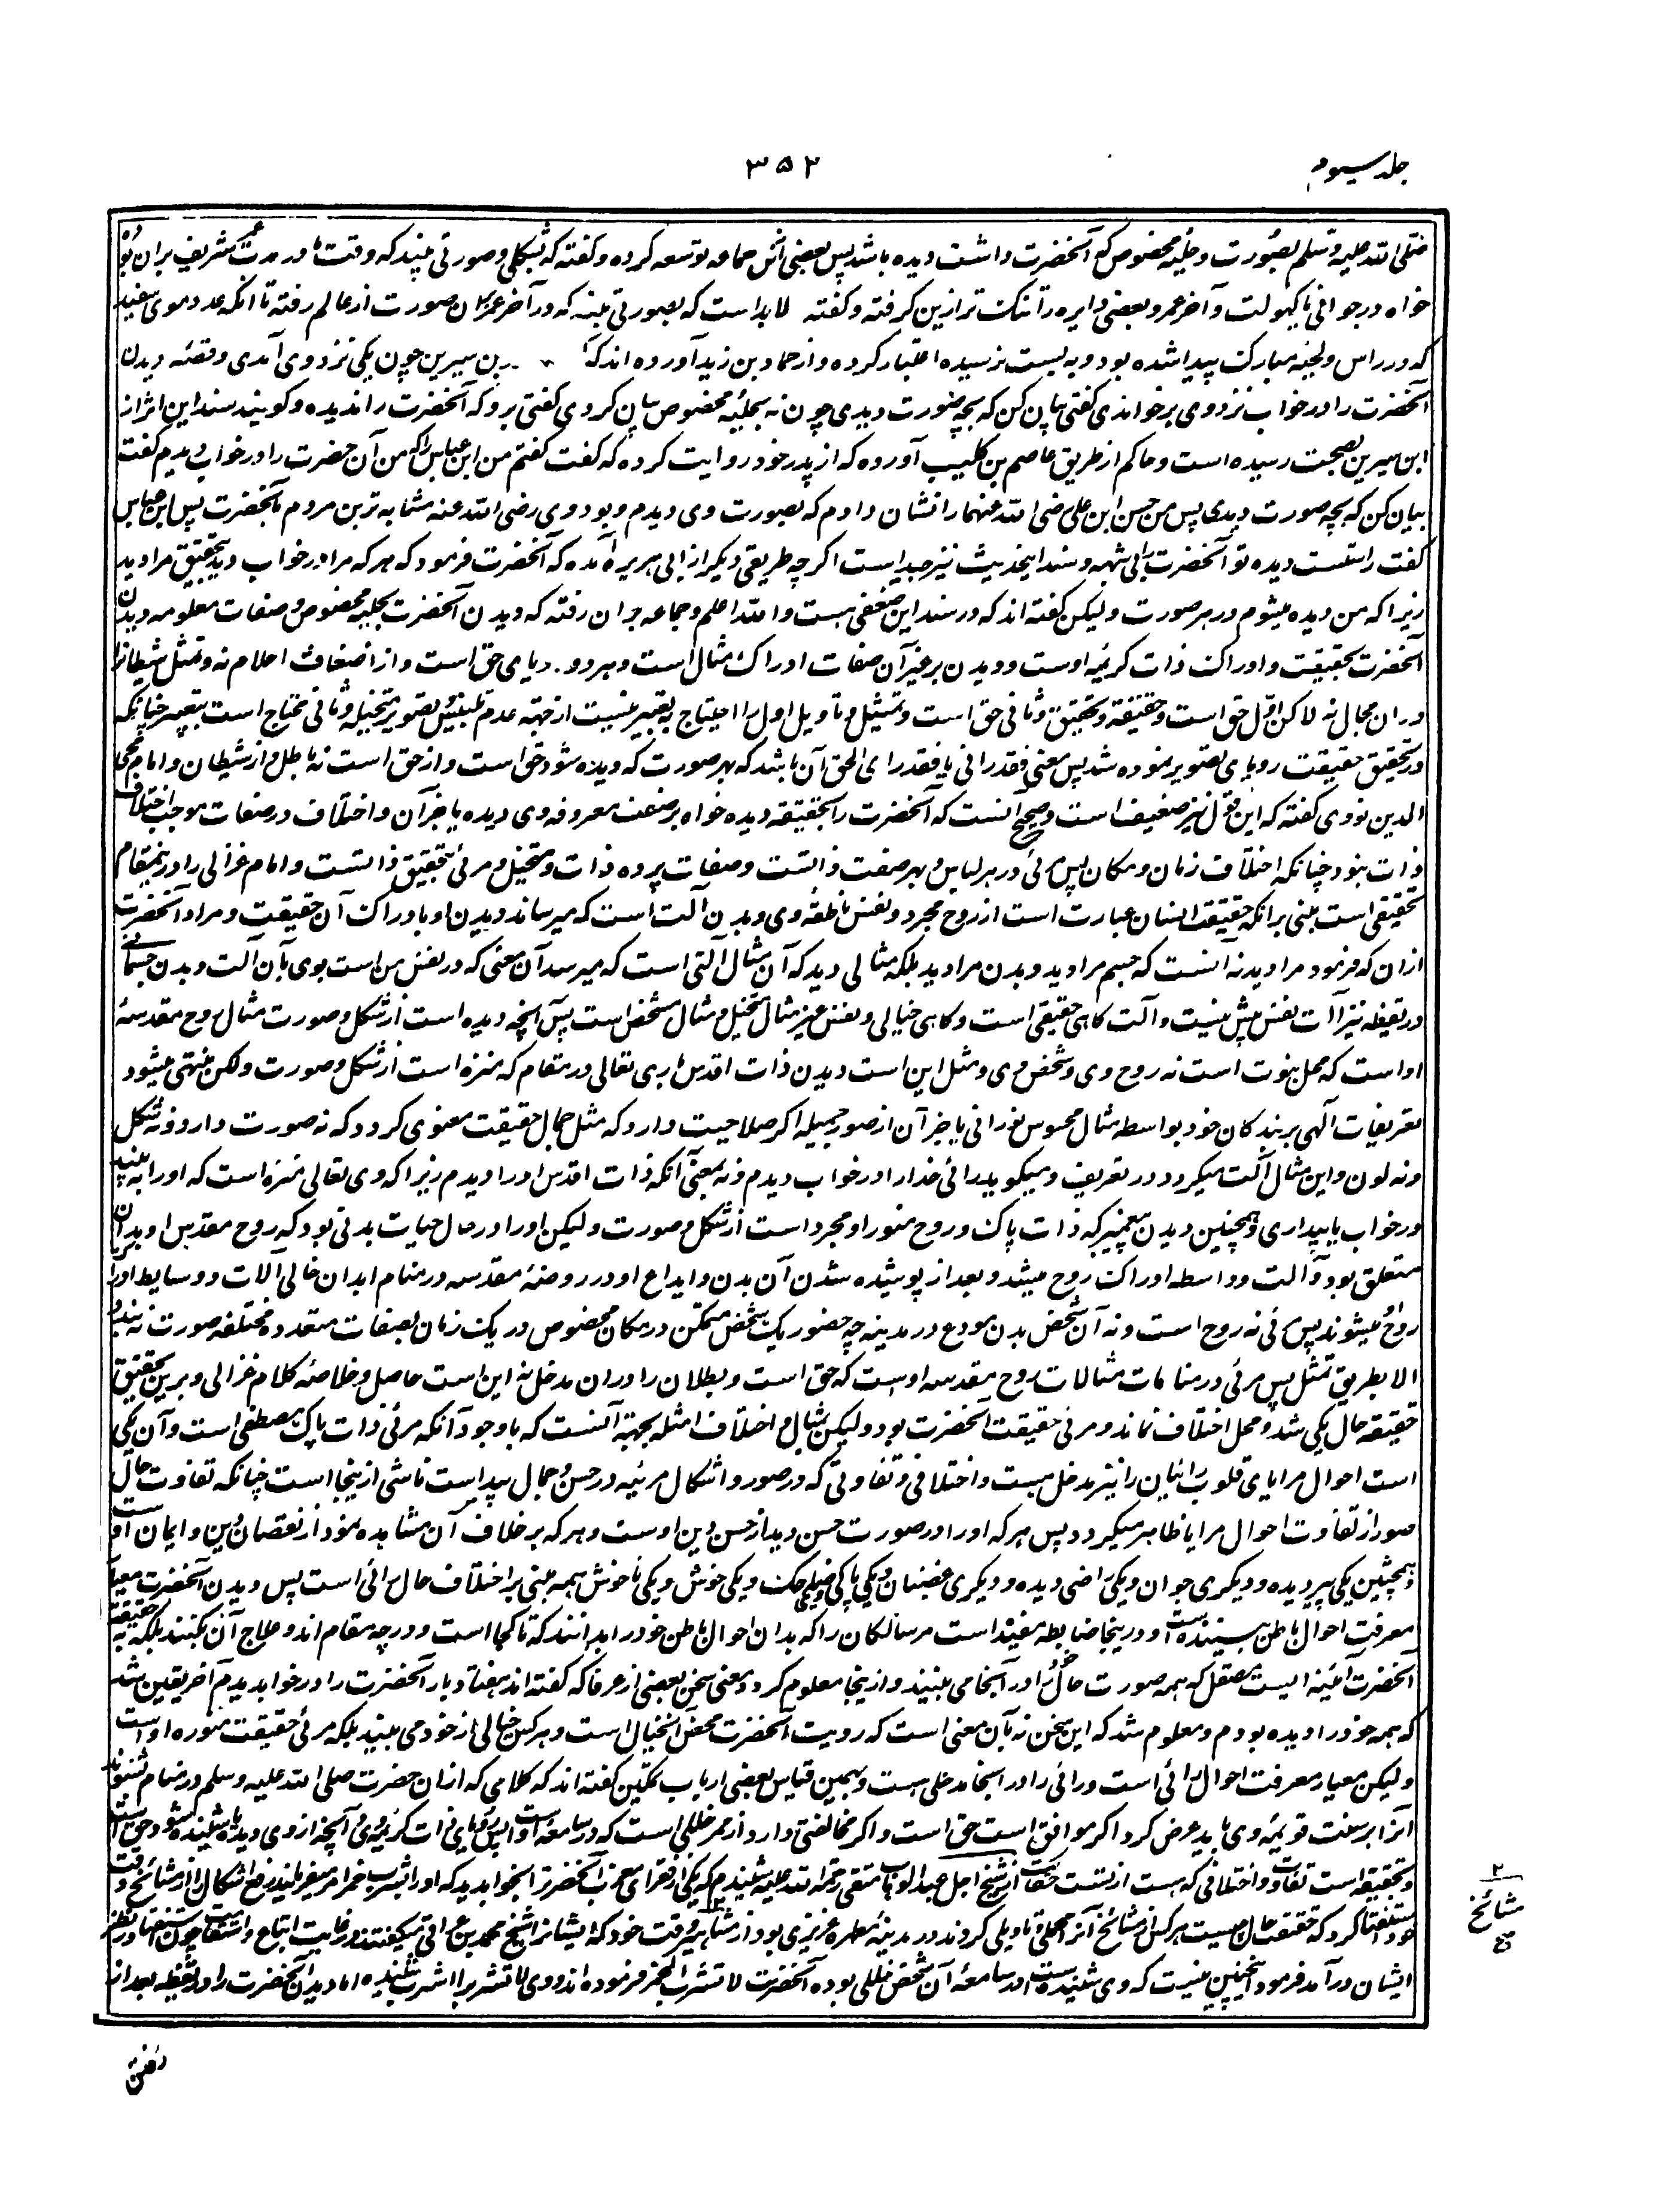 جلد سیوم
۳۵۲
صلی الله علیه وسلم بصورت و حلیه مخصوص که آنحضرت داشت دیده باشد پس بعضی ازین جماعه توسعه کرده و گفته که بشکلی و صورتی بیند که وقت در مدت عمر شریف بران بوده
خواه در جوانی یا کهولت و آخر عمر و بعضی دایره را تنک تر ازین کرفته و گفته لابد است که بصورتی بیند که در آخر عمر بران صورت از عالم رفته تا انکه عدد موی سفید
که در راس و لحیه مبارکت پیدا شده بود و به بیست نرسیده اعتبار کرده و از حماد بن زید آورده اند که بن سیرین چون یکی نزد وی آمدی و قصه دیدن
آنحضرت را در خواب نزد وی برخواندی گفتی بیان کن که بچه صورت دیدی چون نه بحلیه مخصوص بیان کردی گفتی برو که آنحضرت را ندیده و کویند سند این اثر از
ابن سیرین بصحت رسیده است و حاکم از طریق عاصم بن کلیب آورده که از پدر خود روایت کرده که گفت گفتم من ابن عباس را که من آن حضرت را در خواب دیدم گفت
بیان کن که بچه صورت دیدی پس من حسن ابن علی رضی الله عنهما را نشان دادم که بصورت وی دیدم و بود وی رضی الله عنه مشابه ترین مردم بآنحضرت پس ابن عباس
گفت راستست دیده تو آنحضرت را بی شبهه و سند اینحدیث نیز جید است اکر چه طریقی دیکر از ابی هریره آمده که آنحضرت فرمود که هر که مرا در خواب دید بتحقیق مرا دید
زیرا که من دیده میشوم در هر صورت و لیکن گفته اند که در سند این ضعفی هست و الله اعلم و جماعه بران رفته که دیدن آنحضرت بحلیه مخصوص و صفات معلومه دیدن
آنحضرت بحقیقت و ادراکت ذات کریمه اوست و دیدن بر غیر آن صفات ادراک مثال است و هر دو رویای حق است و از اضغاث احلام نه و تمثل شیطانرا
دران مجال نه لاکن اول حق است و حقیقة و تحقیق و ثانی حق است و تمثیل و تاویل اول را احتیاج به تعبیر نیست از جهة عدم تلبیس تصویر متخیله و ثانی محتاج است بتعبیر چنانکه
در تحقیق حقیقت رویای تصویر نموده شد پس معنی فقد رانی یا فقد رای الحق آن باشد که بهر صورت که دیده شود حق است و از حق است نه باطل و از شیطان و امام محی
الدین نووی گفته که این قول نیز ضعیف است و صحیح انست که آنحضرت را بحقیقه دیده خواه بر صفت معروفه وی دیده یا جز آن و اختلاف در صفات موجب اختلاف
ذات نبود چنانکه اختلاف زمان و مکان پس مرئی در هر لباس و بهر صفت ذاتست و صفات پرده ذات و متخیل و مرئی بتحقیق ذاتست و امام غزالی را در ینمقام
تحقیقی است مبنی برانکه حقیقة انسان عبارت است از روح مجرد و نفس ناطقه وی و بدن آلت است که میرساند دیدن او بادراکت آن حقیقت و مراد آنحضرت
ازان که فرمود مرا دید نه آنست که جسم مرا دید و بدن مرا دید بلکه مثالی دید که آن مثال آلتی است که میرسد آن معنی که در نفس من است بوی بآن آلت و بدن جسمانی
در یقظه نیز آلت نفس بیش نیست و آلت کاهی حقیقی است و کاهی خیالی و نفس غیر مثال متخیل و مثال مشخص است پس آنچه دیده است از شکل و صورت مثال روح مقدسه
او است که محل نبوت است نه روح وی و شخص وی و مثل این است دیدن ذات اقدس باری تعالی در منام که منزه است از شکل و صورت و لکن منتهی میشود
تعریفات آلهی بر بندکان خود بواسطه مثال محسوس نورانی یا جز آن از صور جمیله اکر صلاحیت دارد که مثل جمال حقیقت معنوی کردد که نه صورت دارد و نه شکل
و نه لون و این مثال آلت میکردد در تعریف و میکوید رائی خدارا در خواب دیدم و نه بمعنی آنکه ذات اقدس اورا دیدم زیرا که وی تعالی منزه است که اورا به بیند
در خواب یا بیداری و همچنین دیدن پیغمبر که ذات پاکت و روح منور او مجرد است از شکل و صورت و لیکن اورا در حال حیات بدنی بود که روح مقدس او بدان
متعلق بود و آلت و واسطه ادراکت روح میشد و بعد از پوشیده شدن آن بدن و ایداع او در روضه مقدسه در منام ابدان خالی آلات و وسایط ادراک
روح میشوند پس مرئی نه روح است و نه آن شخص بدن مودع در مدینه چه حضور یک شخص متمکن در مکان مخصوص در یک زمان بصفات متعدده مختلفه صورت نه بندد
الا بطریق تمثل پس مرئی در منامات مثالات روح مقدسه اوست که حق است و بطلان را دران مدخل نه این است حاصل و خلاصه کلام غزالی و برین تحقیق
حقیقة حال یکی شد و محل اختلاف نماند و مرئی حقیقت آنحضرت بود و لیکن بمثال و اختلاف امثله بجهة آنست که با وجود آنکه مرئی ذات پاک مصطفی است و آن یکی
است احوال مرایای قلوب رائیان را نیز مدخل هست و اختلافی و تفاوتی که در صور و اشکال مرئیه در حسن و جمال پیدا است ناشی ازینجا است چنانکه تفاوت حال
صور از تفاوت احوال مرایا ظاهر میکردد پس هر که اورا در صورت حسن دید از حسن دین اوست و هر که بر خلاف آن مشاهده نمود از نقصان دین و ایمان اوست
و همچنین یکی پیر دیده و دیکری جوان و یکی راضی دیده و دیکری غضبان و یکی خوش و یکی ناخوش همه مبنی بر اختلاف حال رائی است پس دیدن آنحضرت معیار
معرفت احوال باطن بیننده است و درینجا ضابطه مفید است مر سالکان را که بدان احوال باطن خود را بدانند که تا کجا است و در چه مقام اند و علاج آن بکنند بلکه به حقیقة
آنحضرت آئینه ایست مصقل که همه صورت حال خود را در آنجا می بینند و ازینجا معلوم کردد معنی سخن بعضی از عرفا که گفته اند هفتاد بار آنحضرت را در خواب دیدیم آخر یقین شد
که همه خود را دیده بودم و معلوم شد که این سخن نه بآن معنی است که رویت آنحضرت محض خیال است و هر کس خیالی از خود می بیند بلکه مرئی حقیقت منوره اوست
و لیکن معیار معرفت احوال رائی است و رائی را در اینجا مدخلی هست و بهمین قیاس بعضی ارباب تمکین گفته اند که کلامی که ازان حضرت صلی الله علیه وسلم در منام شنوند
آنرا بر سنت قویمه وی باید عرض کرد اکر موافق است حق است و اکر مخالفتی دارد از ممر خللی است که در سامعه اوست پس رویای ذات کریمه وی و آنچه از وی دیده یا شنیده شود حق است
و بحقیقة است تفاوت و اختلافی که هست از تست حکایت از شیخ اجل عبدالوهاب متقی رحمة الله علیه شنیدم که یکی از فقرای مغرب آنحضرت را بخواب دید که اورا بشرب خمر امر میفرمایند رفع اشکال را از مشائخ وقت
خود استفتا کرد که حقیقت حال چیست هر کس از مشائخ آنرا محملی و تاویلی کردند در مدینه مطهره عزیزی بود از مشاهیر وقت خود که ایشانرا شیخ محمد بن عراقی میکفتند در غایت اتباع و استقامت چون استفتا در نظر
ایشان درآمد فرمود اینچنین نیست که وی شنیده است در سامعه آن شخص خللی بوده آنحضرت لا تشرب الخمر فرموده اند و وی لا تشرب را اشرب شنیده اما دیدن آنحضرت را در یقظه بعد از
۲
مشائخ
صح
رفتن